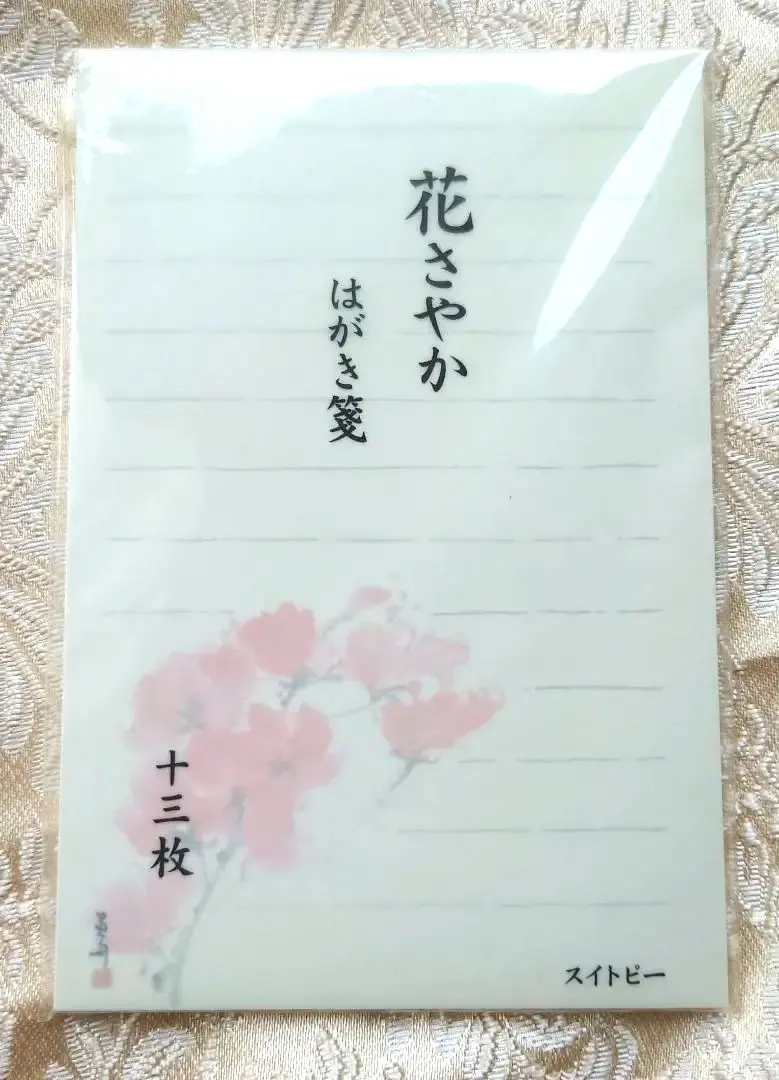 花さやか
はがき箋
十三枚
スイトピー